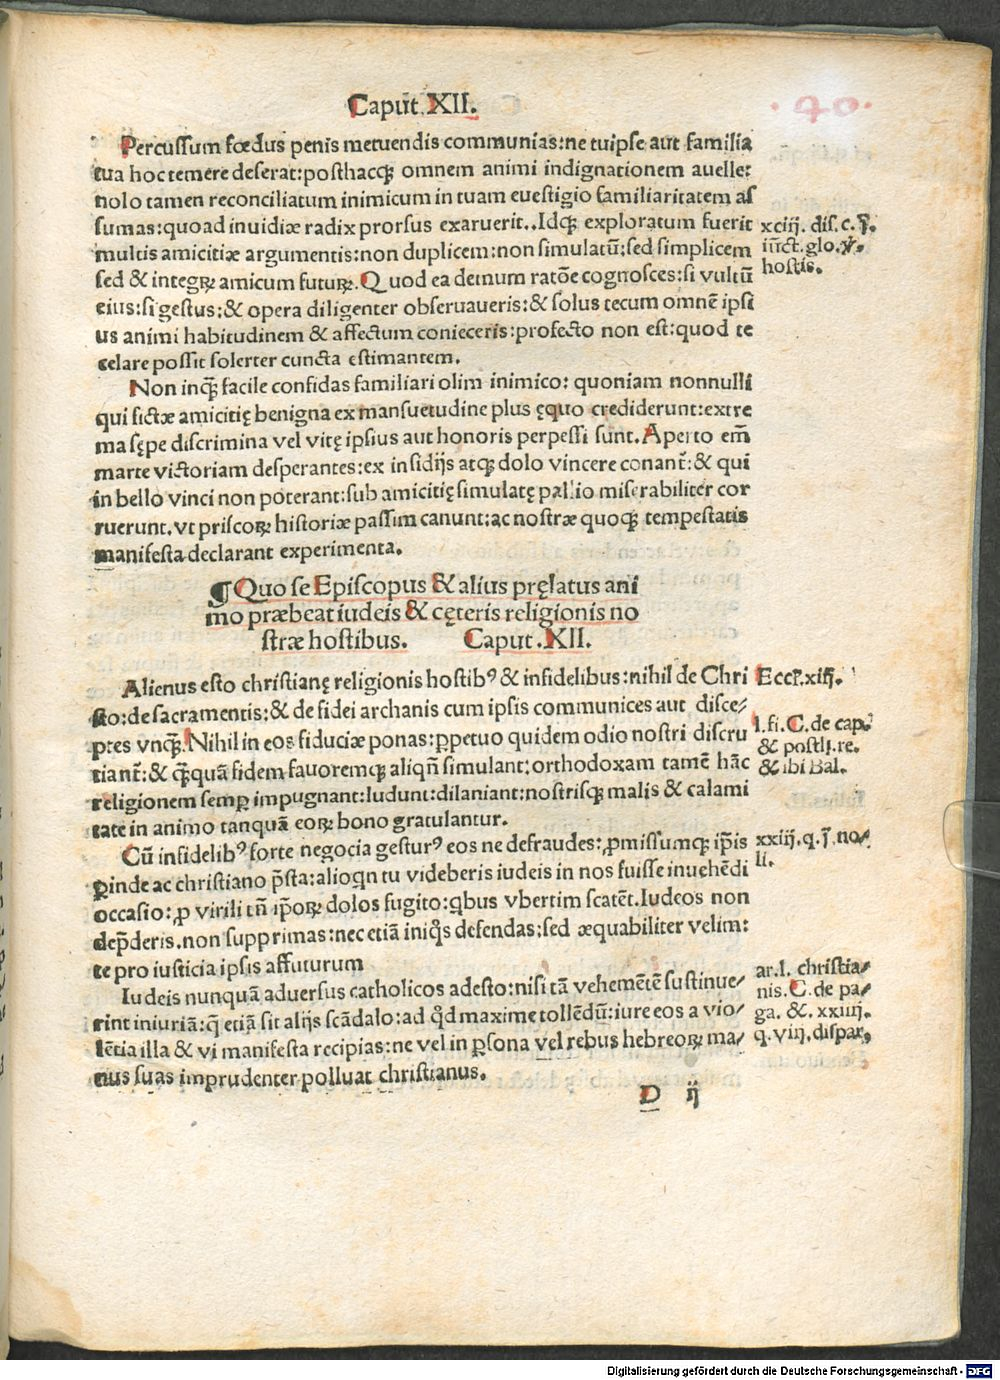 Caput. XII.
·40·
Percussum fœdus penis metuendis communias: ne tuipse aut familia
tua hoc temere deserat: posthaccꝗ omnem animi indignationem auelle:
nolo tamen reconciliatum inimicum in tuam euestigio familiaritatem as
sumas: quoad inuidiæ radix prorsus exaruerit.. Idcꝗ exploratum fuerit
multis amicitiæ argumentis: non duplicem: non simulatū; sed simplicem
sed & integrꝝ amicum futurꝝ. Quod ea demum ratōe cognosces: si vultū
eius: si gestus: & opera diligenter obseruaueris: & solus tecum omnē ipsi
us animi habitudinem & affectum conieceris: profecto non est: quod te
celare possit solerter cuncta estimantem.
xciij. dis. c. j.
iūct. glo. ꝟ.
hostis.
Non inqꝫ facile confidas familiari olim inimico: quoniam nonnulli
qui fictæ amicitię benigna ex mansuetudine plus ęquo crediderunt: extre
ma sępe discrimina vel vitę ipsius aut honoris perpessi sunt. Aperto em̄
marte victoriam desperantes: ex insidijs atqꝫ dolo vincere conant̄: & qui
in bello vinci non poterant: sub amicitię simulatę pallio miserabiliter cor
ruerunt. vt priscorꝝ historiæ passim canunt: ac nostræ quoqꝫ tempestatis
manifesta declarant experimenta.
¶ Quo se Episcopus & alius pręlatus ani
mo præbeat iudeis & cęteris religionis no
stræ hostibus. Caput. XII.
Alienus esto christianę religionis hostibꝰ & infidelibus: nihil de Chri
sto: de sacramentis: & de fidei archanis cum ipsis communices aut disce⸗
ptes vnqꝫ. Nihil in eos fiduciæ ponas: ꝑpetuo quidem odio nostri discru
tiant̄: & qꝫquā fidem fauoremqꝫ aliqn̄ simulant: orthodoxam tamē hāc
religionem semꝑ impugnant: ludunt: dilaniant: nostrisqꝫ malis & calami
tate in animo tanquā eorꝝ bono gratulantur.
Eccl̄. xiij.
l. fi. C. de cap.
& postli. re.
& ibi Bal.
Cū infidelibꝰ forte negocia gesturꝰ eos ne defraudes: ꝓmissumqꝫ ip̄is
ꝑinde ac christiano p̄sta: alioqn tu videberis iudeis in nos fuisse inuehēdi
occasio: ꝓ virili tn̄ ip̄orꝝ dolos fugito: qbus vbertim scatēt. Iudeos non
dep̄deris. non supprimas: nec etiā iniqꝰs defendas: sed æquabiliter velim:
te pro iusticia ipsis affuturum
xxiij. q. j. no⸗
li.
Iudeis nunquā aduersus catholicos adesto: nisi tā vehemētē sustinue⸗
rint iniuriā: q̄ etiā sit alijs scādalo: ad qd maxime tollēdū: iure eos a vio⸗
lētia illa & vi manifesta recipias: ne vel in ꝑsona vel rebus hebreorꝝ ma⸗
nus suas imprudenter polluat christianus.
ar. l. christia⸗
nis. C. de pa⸗
ga. &. xxiiij.
q. viij. dispar.
D ij
Digitalisierung gefördert durch die Deutsche Forschungsgemeinschaft - DFG